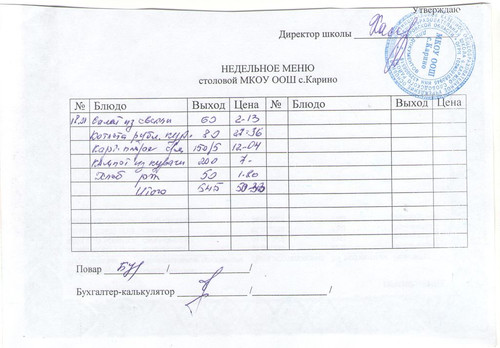 Утверждаю
Директор школы
МКОУ ООШ
с.Карино
НЕДЕЛЬНОЕ МЕНЮ
столовой МКОУ ООШ с.Карино
№ Блюдо Выход Цена № Блюдо Выход Цена
салат из свеклы 60 2-13
Котлета рубл. кур. 80 27-36
150/5 12-04
Компот из кураги 200 7-
Хлеб рж 50 1-80
Итого 545
Повар
Бухгалтер-калькулятор